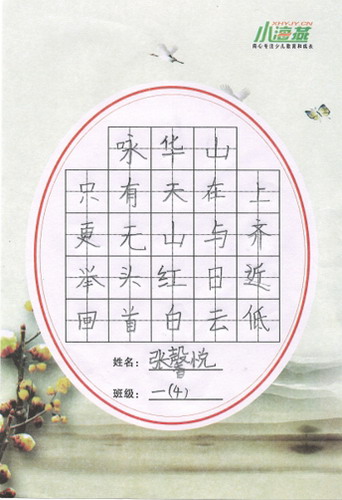 XHYJY.CN
小海燕
用心专注少儿教育和成长
咏华山
只有天在上
更无山与齐
举头红日近
回首白去低
姓名：张馨悦
班级：一(4)